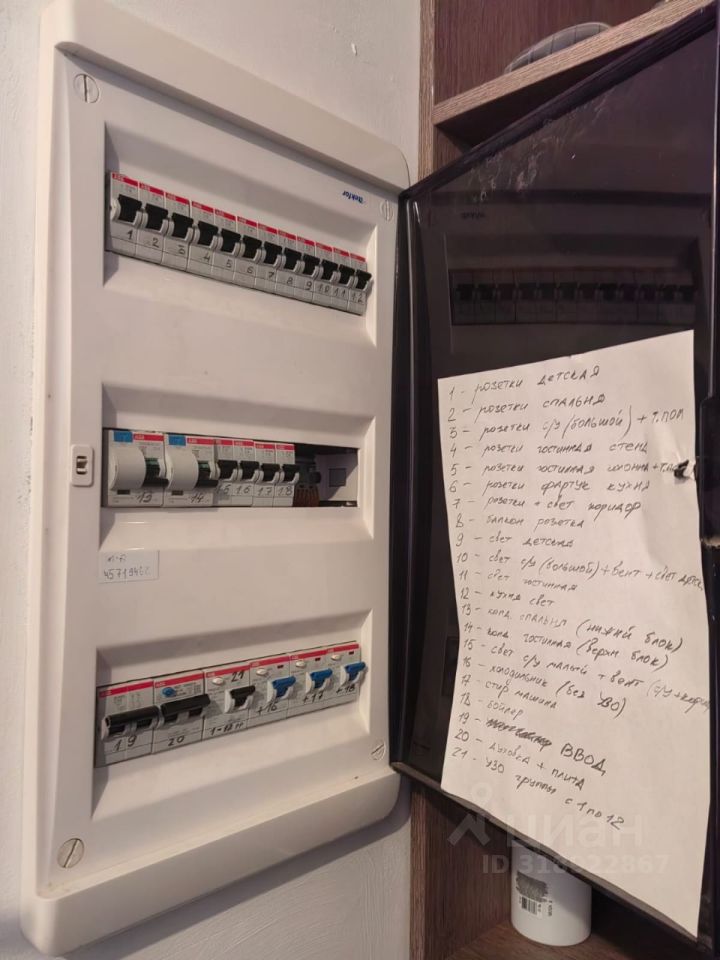 tekfor
1 2 3 4 5 6 7 8 9 10 11 12
ABB ABB
13 14 15 16 17 18
Wi-Fi
ABB ABB ABB ABB ABB ABB
19 20 21 +16 +17 +18
1-12
1 - розетки детская
2 - розетки спальня
3 - розетки с/у (большой) + т.пол
4 - розетки гостинная стена
5 - розетки гостинная
6 - розетки фартук кухня
7 - розетки + свет коридор
8 - балкон розетка
9 - свет детская
10 - свет с/у (большой) + вент + свет
11 - свет гостинная
12 - кухня свет
13 - конд. спальня (нижний блок)
14 - конд. гостинная (верхн блок)
15 - свет с/у малый + вент (с/у + корид
16 - холодильник (без УЗО)
17 - стир машина
18 - бойлер
19 - ВВОД
20 - духовка + плита
21 - УЗО группы с 1 по 12
циан